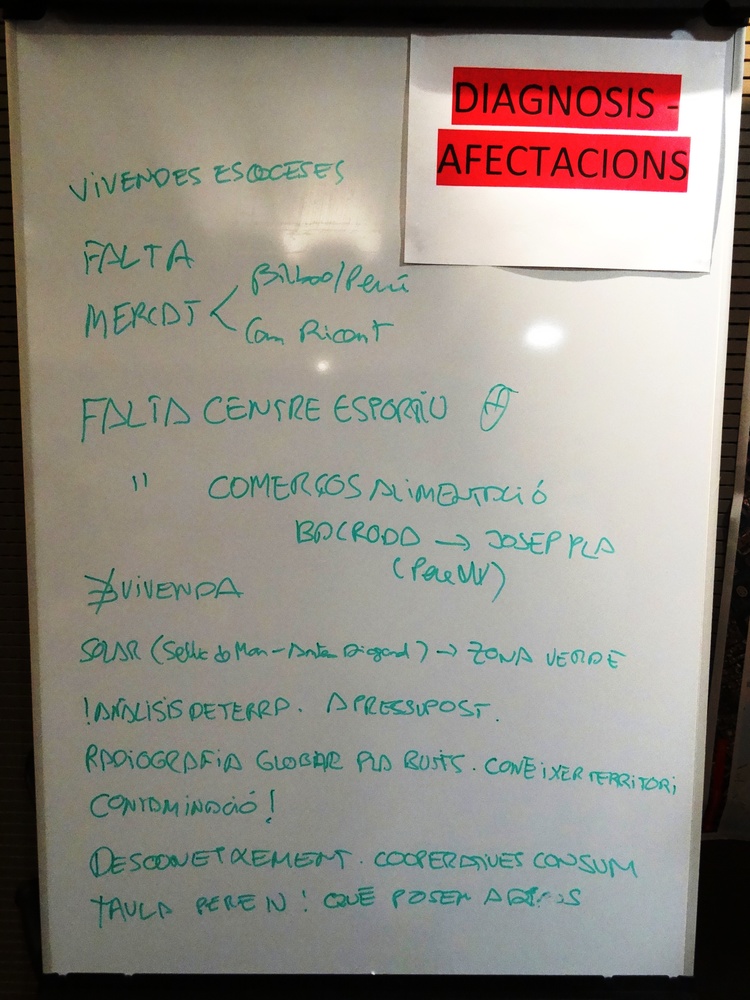 DIAGNOSIS -
AFECTACIONS
VIVENDES ESCOCESES
FALTA
MERCAT < Bilbao/Perú
Can Ricart
FALTA CENTRE ESPORTIU
" COMERÇOS ALIMENTACIÓ
BACRODA → JOSEP PLA
(Pere IV)
∄ VIVENDA
SOLAR (Selva de Mar - ) → ZONA VERDE
! ANÀLISIS DE TERRA. A PRESSUPOST.
RADIOGRAFIA GLOBAL PLA BUITS. CONEIXER TERRITORI
CONTAMINACIÓ!
DESCONEIXEMENT. COOPERATIVES CONSUM
TAULA PERE IV! QUÈ POSEM